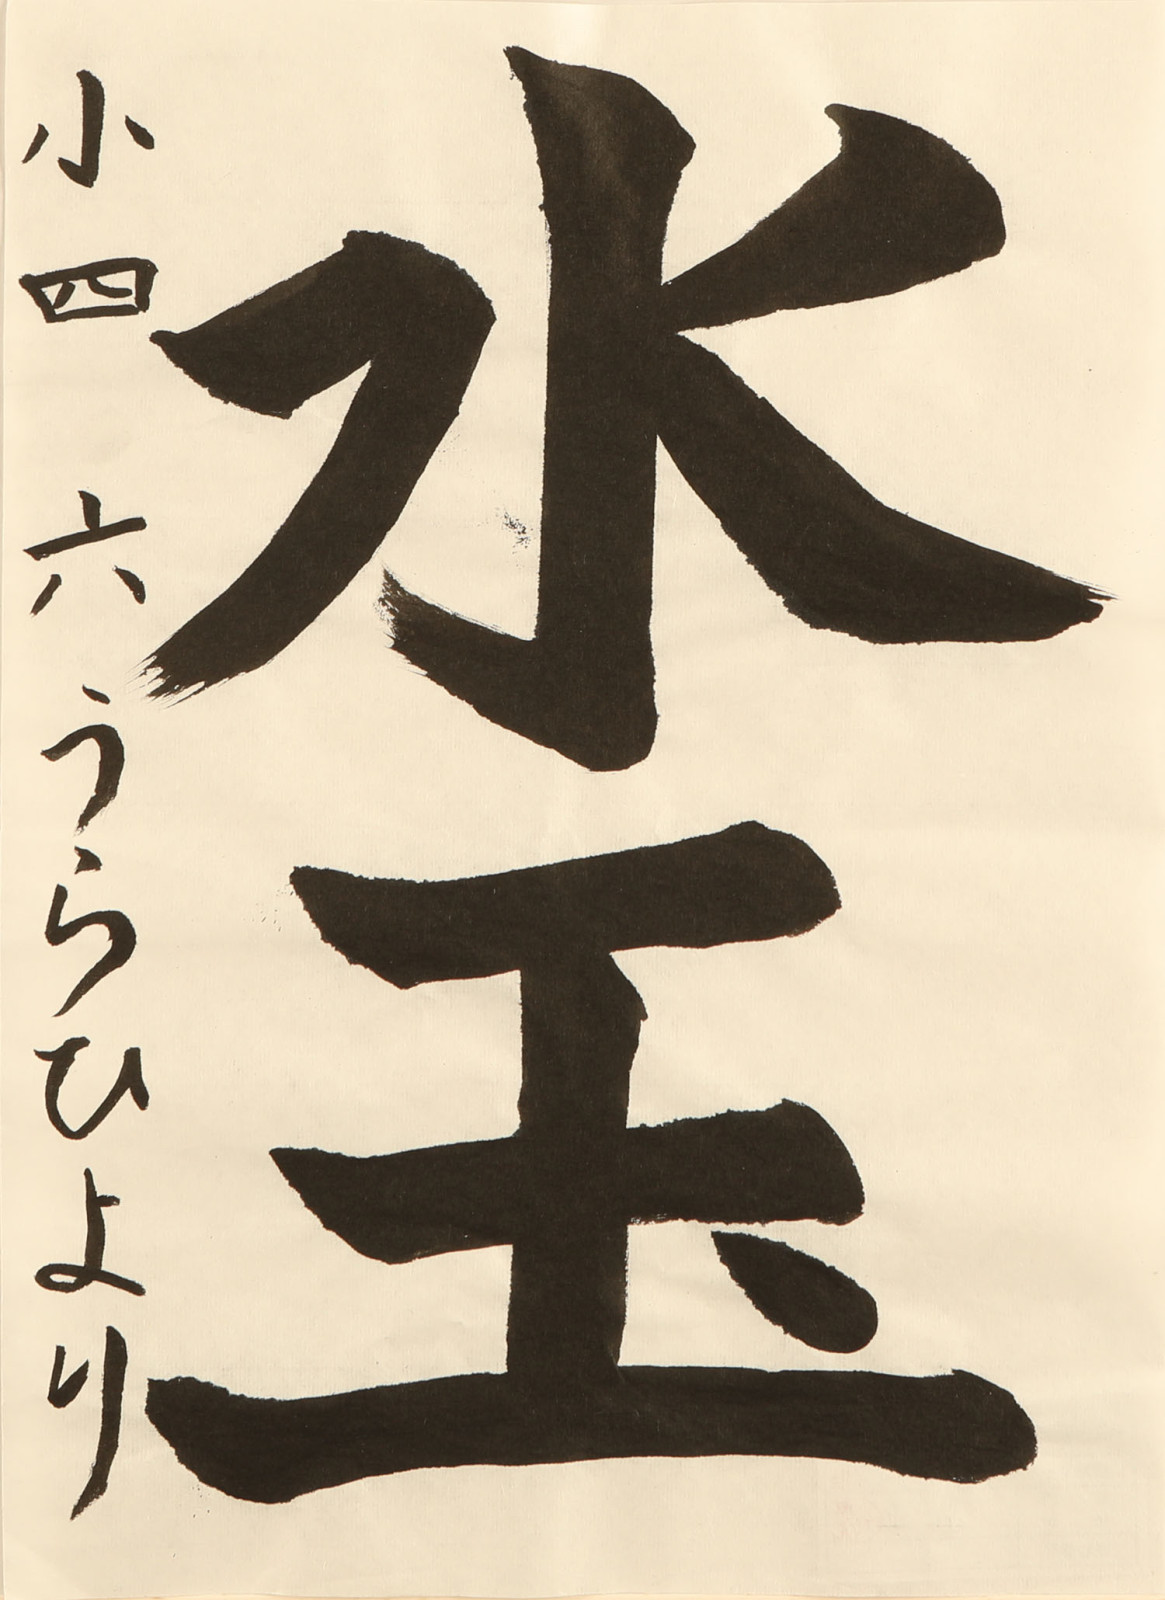 水玉
小四 六 うらひより